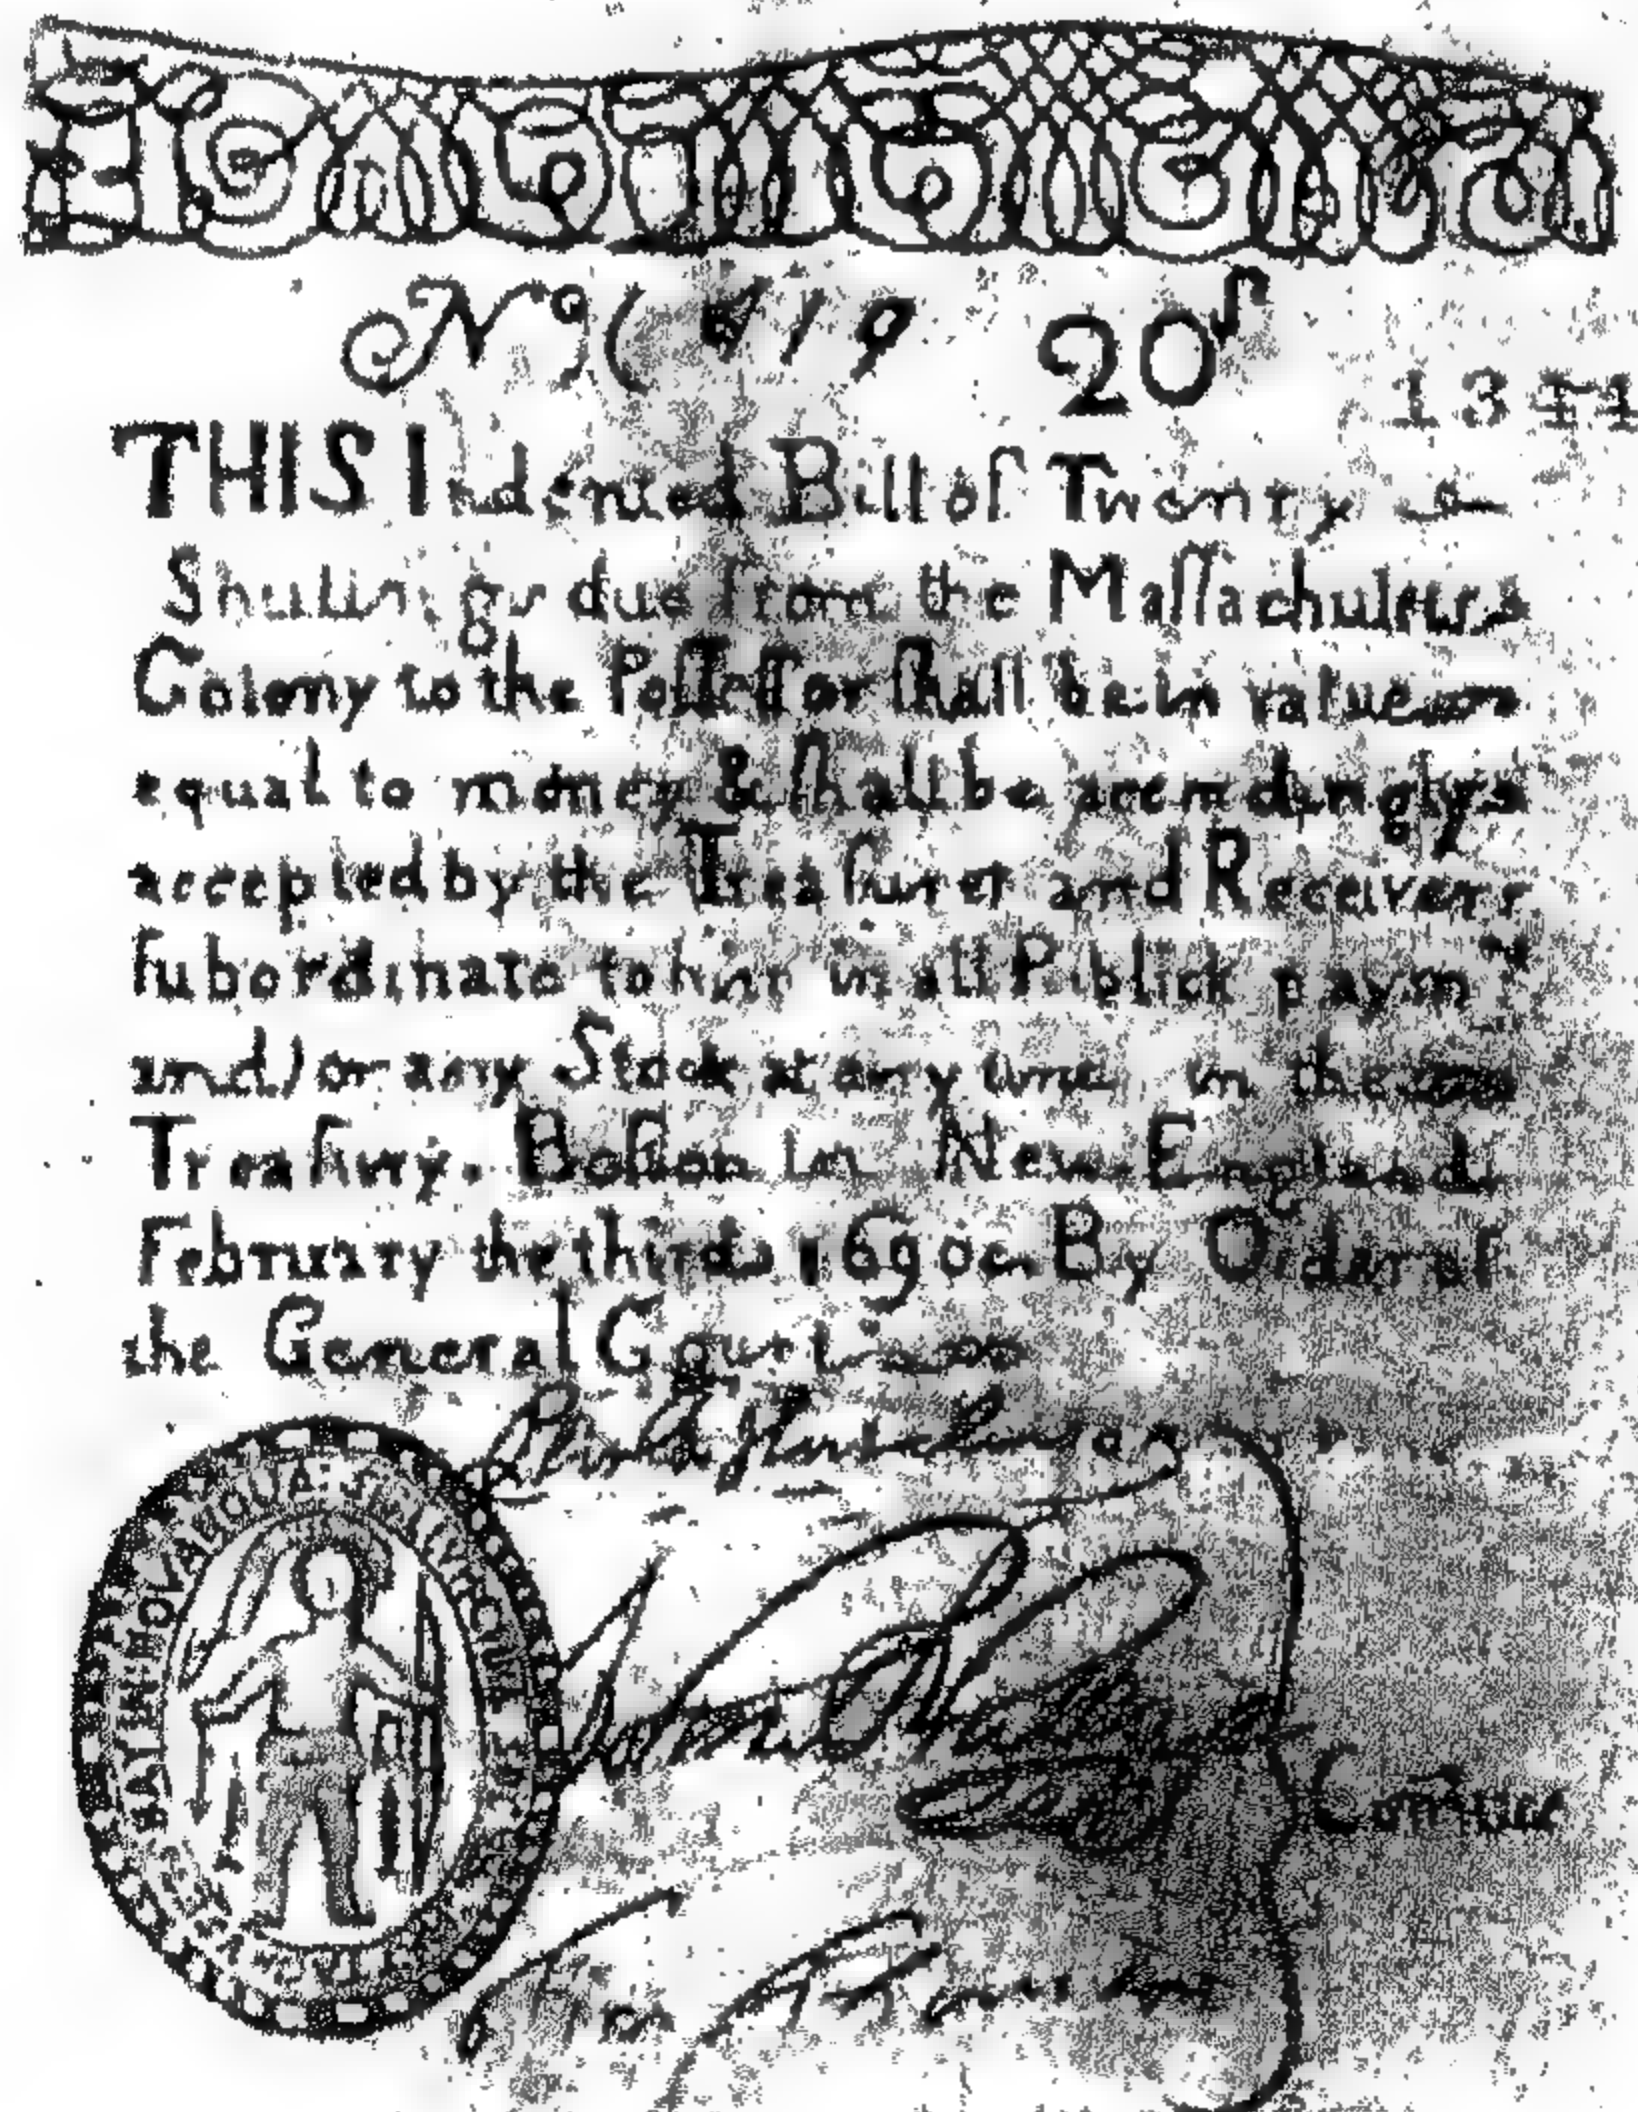 Nº (619 20ˢ
1344
THIS Indented Bill of Twenty
Shillings due from the Maſſachuſetts
Colony to the Poſſeſſor ſhall be in value
equal to money & ſhall be accordingly
accepted by the Treaſurer and Receivers
ſubordinate to him in all Publick paymᵗˢ
and for any Stock at any time in the
Treaſury. Boſton in New-England
February the third 1690. By Order of
the General Court
Comittee